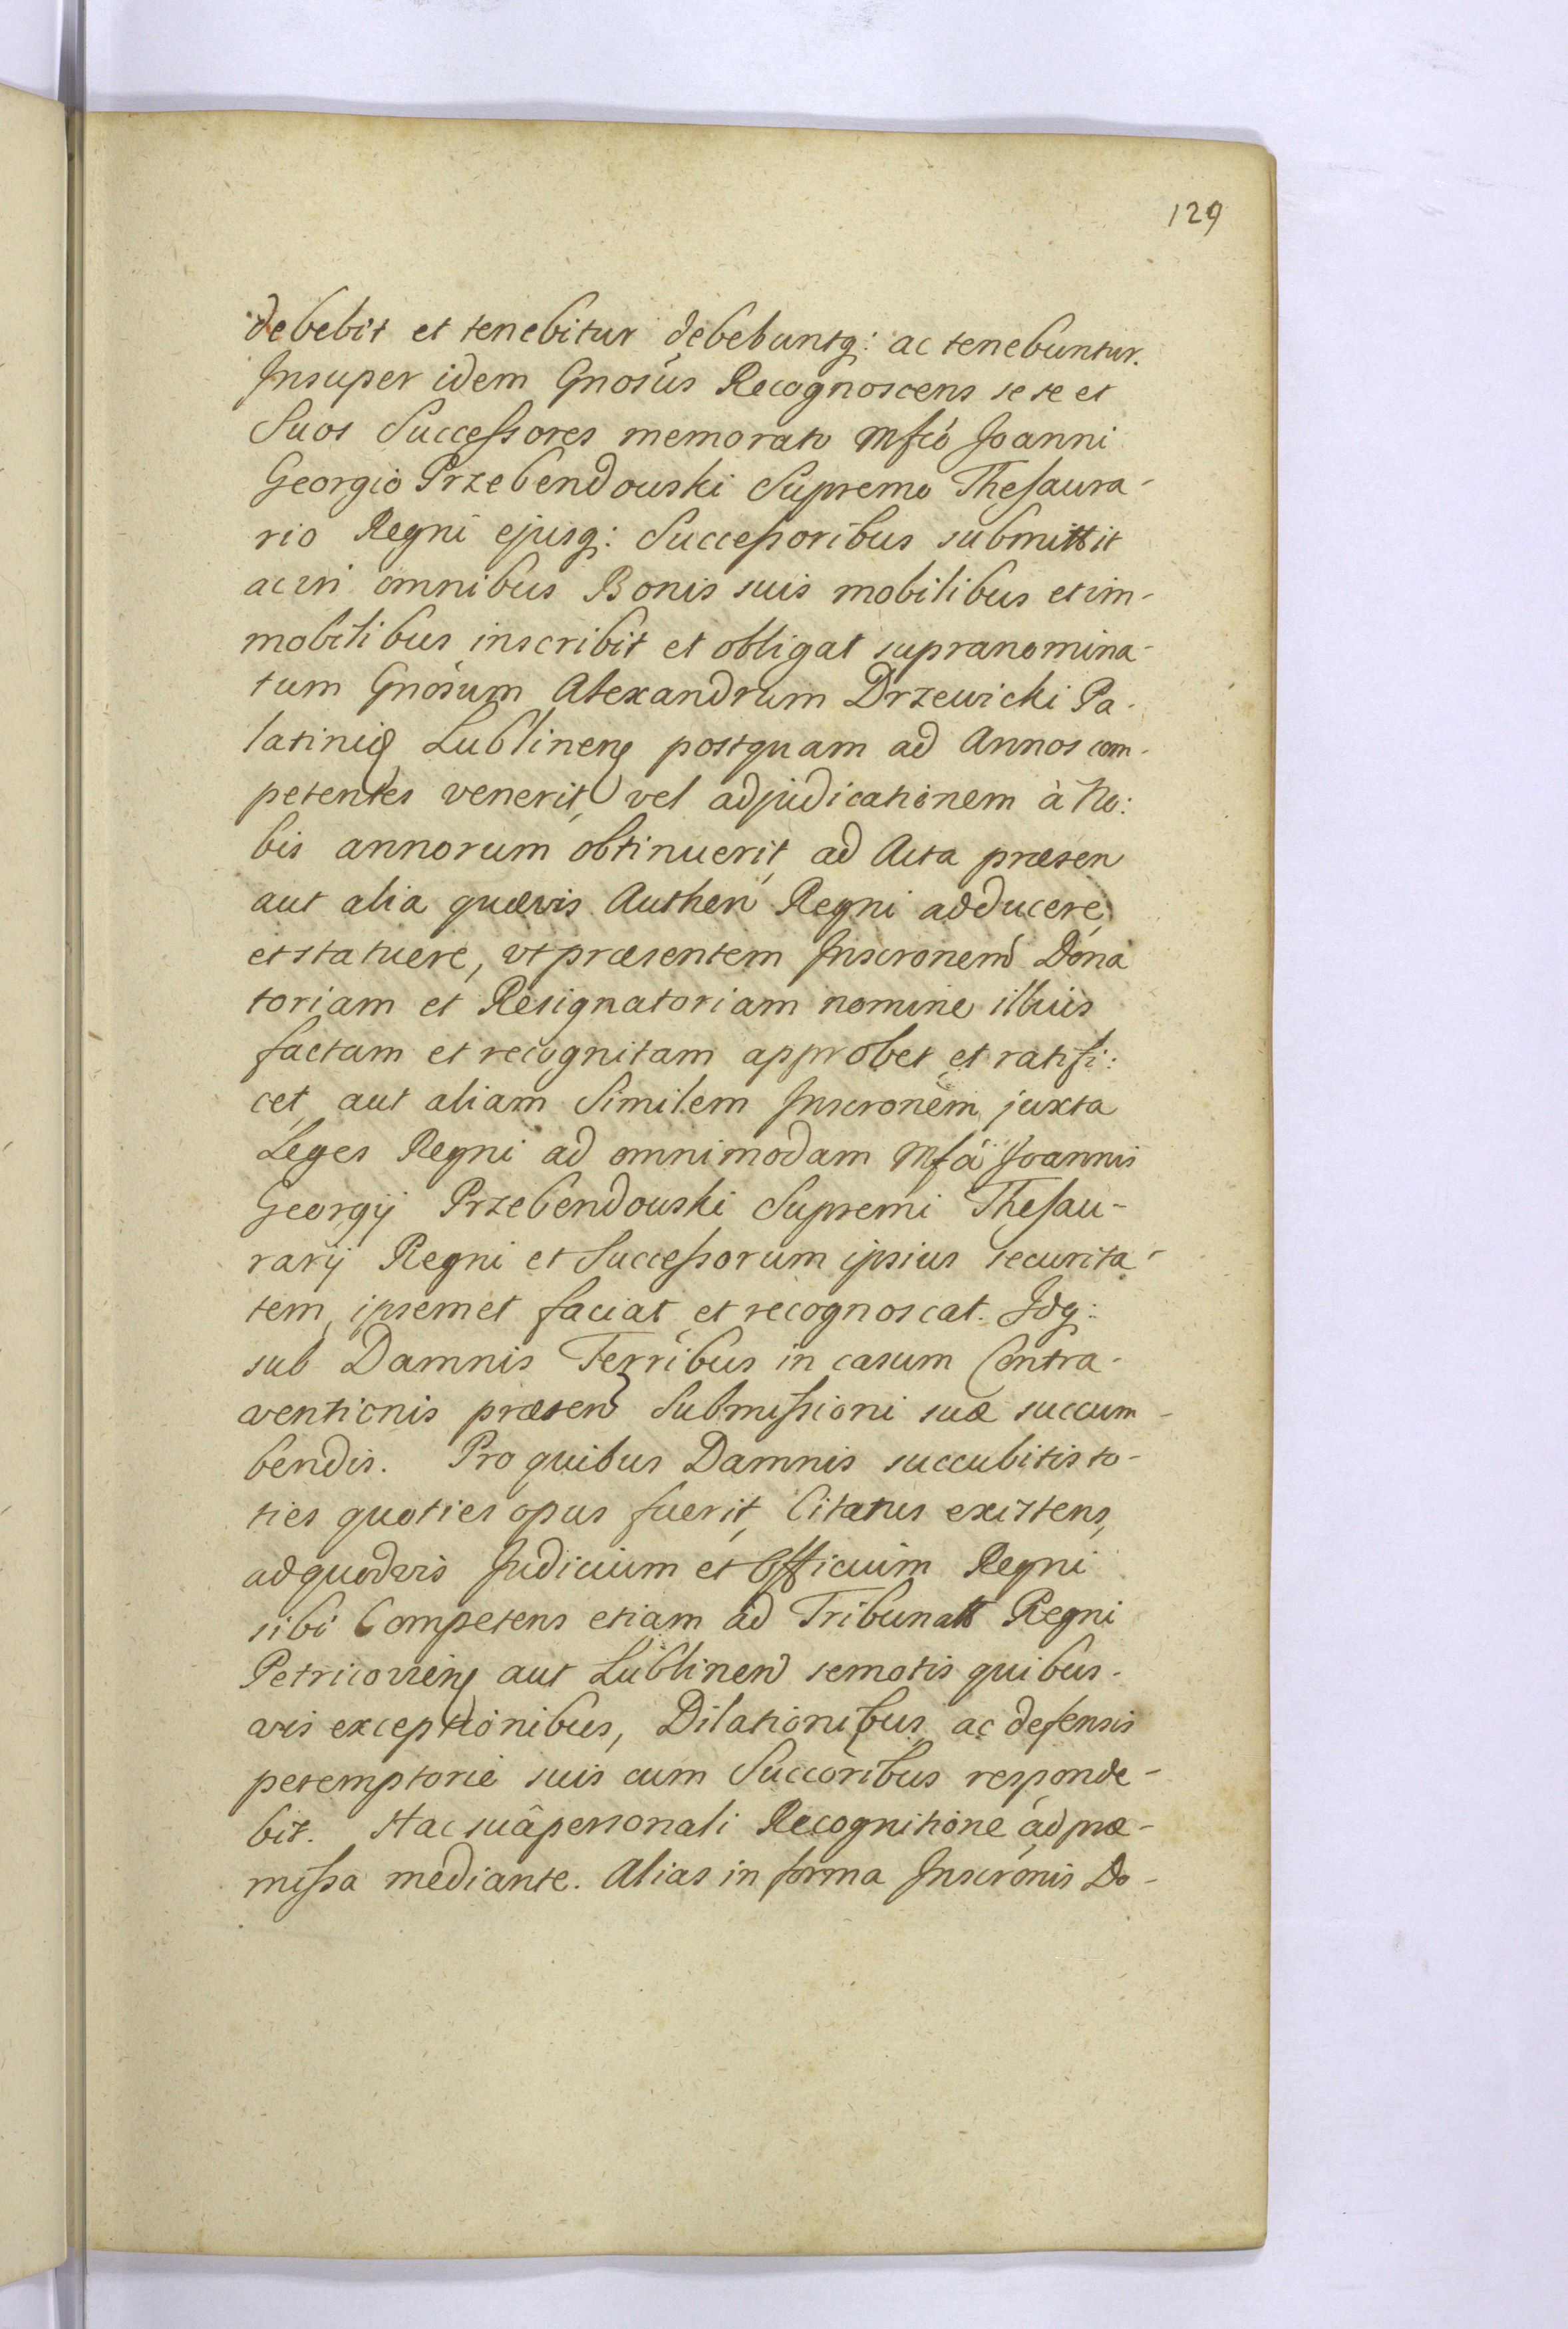 129
debebit et tenebitur debebuntq: ac tenebuntur.
Insuper idem Gnosus Recognoscens se se et
Suos Successores memorato Mfco Joanni
Georgio Przebendowski Supremo Thesaura-
rio Regni ejusq: Successoribus submittit
ac in omnibus Bonis suis mobilibus et im-
mobilibus inscribit et obligat supranomina-
tum Gnosum Alexandrum Drzewicki Pa-
latinid Lublinen postquam ad Annos com-
petentes venerit, vel adjudicationem à No:
bis annorum obtinuerit, ad Acta præsen
aut alia quævis Authen Regni adducere,
et statuere, vt præsentem Inscronem Dona
toriam et Resignatoriam nomine illius
factam et recognitam approbet et ratifi:
cet, aut aliam Similem Inscronem juxta
Leges Regni ad omnimodam Mfci Joannis
Georgij Przebendowski Supremi Thesau-
rarij Regni et Successorum ipsius securita-
tem, ipsemet faciat et recognoscat. Idq:
sub Damnis Terribus in casum Contra-
ventionis præsen Submissioni suæ succum-
bendis. Pro quibus Damnis succubitis to-
ties quoties opus fuerit, Citatus existens,
ad quodvis Judicium et Officium Regni
sibi Competens etiam ad Tribunall Regni
Petricovien aut Lublinen semotis quibus-
vis exceptionibus, Dilationibus ac defensis
peremptorie suis cum Succoribus responde-
bit. Hac suâ personali Recognitione ad præ-
missa mediante. Alias in forma Inscronis Do-